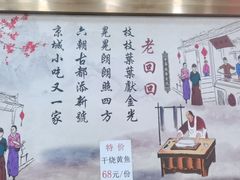 老回回
枝枝葉葉獻金光
晃晃朗朗照四方
六朝古都添新號
京城小吃又一家
特价
干烧黄鱼
68元/份